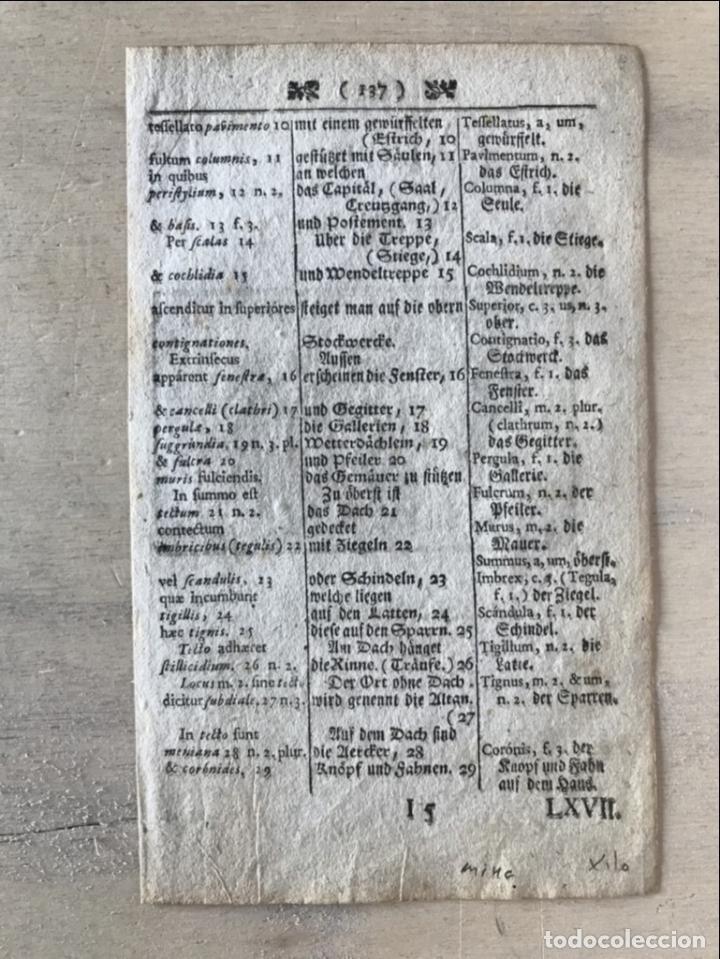 ( 137 )
tessellato pavimento 10
fultum columnis, 11
in quibus
peristylium, 12 n. 2.
& basis. 13 f. 3.
Per scalas 14
& cochlidia 15
ascenditur in superiores
contignationes.
Extrinsecus
apparent fenestræ, 16
& cancelli (clathri) 17
pergulæ, 18
suggrundia. 19 n. 3. pl.
& fulcra 20
muris fulciendis.
In summo est
tectum 21 n. 2.
contectum
imbricibus (tegulis) 22
vel scandulis. 23
quæ incumbunt
tigillis, 24
hæc tignis. 25
Tecto adhæret
stillicidium. 26 n. 2.
Locus m. 2. sine tect.
dicitur subdiale. 27 n. 3.
In tecto sunt
meniana 28 n. 2. plur.
& corônides, 29
mit einem gewürffelten
(Estrich, 10
gestützet mit Säulen, 11
an welchen
das Capitäl, (Saal,
Creutzgang,) 12
und Postement. 13
Uber die Treppe,
(Stiege,) 14
und Wendeltreppe 15
steiget man auf die obern
Stockwercke.
Aussen
erscheinen die Fenster, 16
und Gegitter, 17
die Gallerien, 18
Wetterdächlein, 19
und Pfeiler 20
das Gemäuer zu stützen
Zu öberst ist
das Dach 21
gedecket
mit Ziegeln 22
oder Schindeln, 23
welche liegen
auf den Latten, 24
diese auf den Sparrn. 25
Am Dach hänget
die Rinne. (Träufe.) 26
Der Ort ohne Dach
wird genennt die Altan.
(27
Auf dem Dach sind
die Aercker, 28
Knöpf und Fahnen. 29
Tessellatus, a, um,
gewürffelt.
Pavimentum, n. 2.
das Estrich.
Columna, f. 1. die
Seule.
Scala, f. 1. die Stiege.
Cochlidium, n. 2. die
Wendeltreppe.
Superior, c. 3. us, n. 3.
ober.
Contignatio, f. 3. das
Stockwerck.
Fenestra, f. 1. das
Fenster.
Cancelli, m. 2. plur.
(clathrum, n. 2.)
das Gegitter.
Pergula, f. 1. die
Gallerie.
Fulcrum, n. 2. der
Pfeiler.
Murus, m. 2. die
Mauer.
Summus, a, um, öberst.
Imbrex, c. 3. (Tegula,
f. 1.) der Ziegel.
Scándula, f. 1. der
Schindel.
Tigillum, n. 2. die
Latte.
Tignus, m. 2. & um,
n. 2. der Sparren.
Corônis, f. 3. der
Knopf und Fahn
auf dem Haus.
I 5
LXVII.
xilo
todocoleccion.net